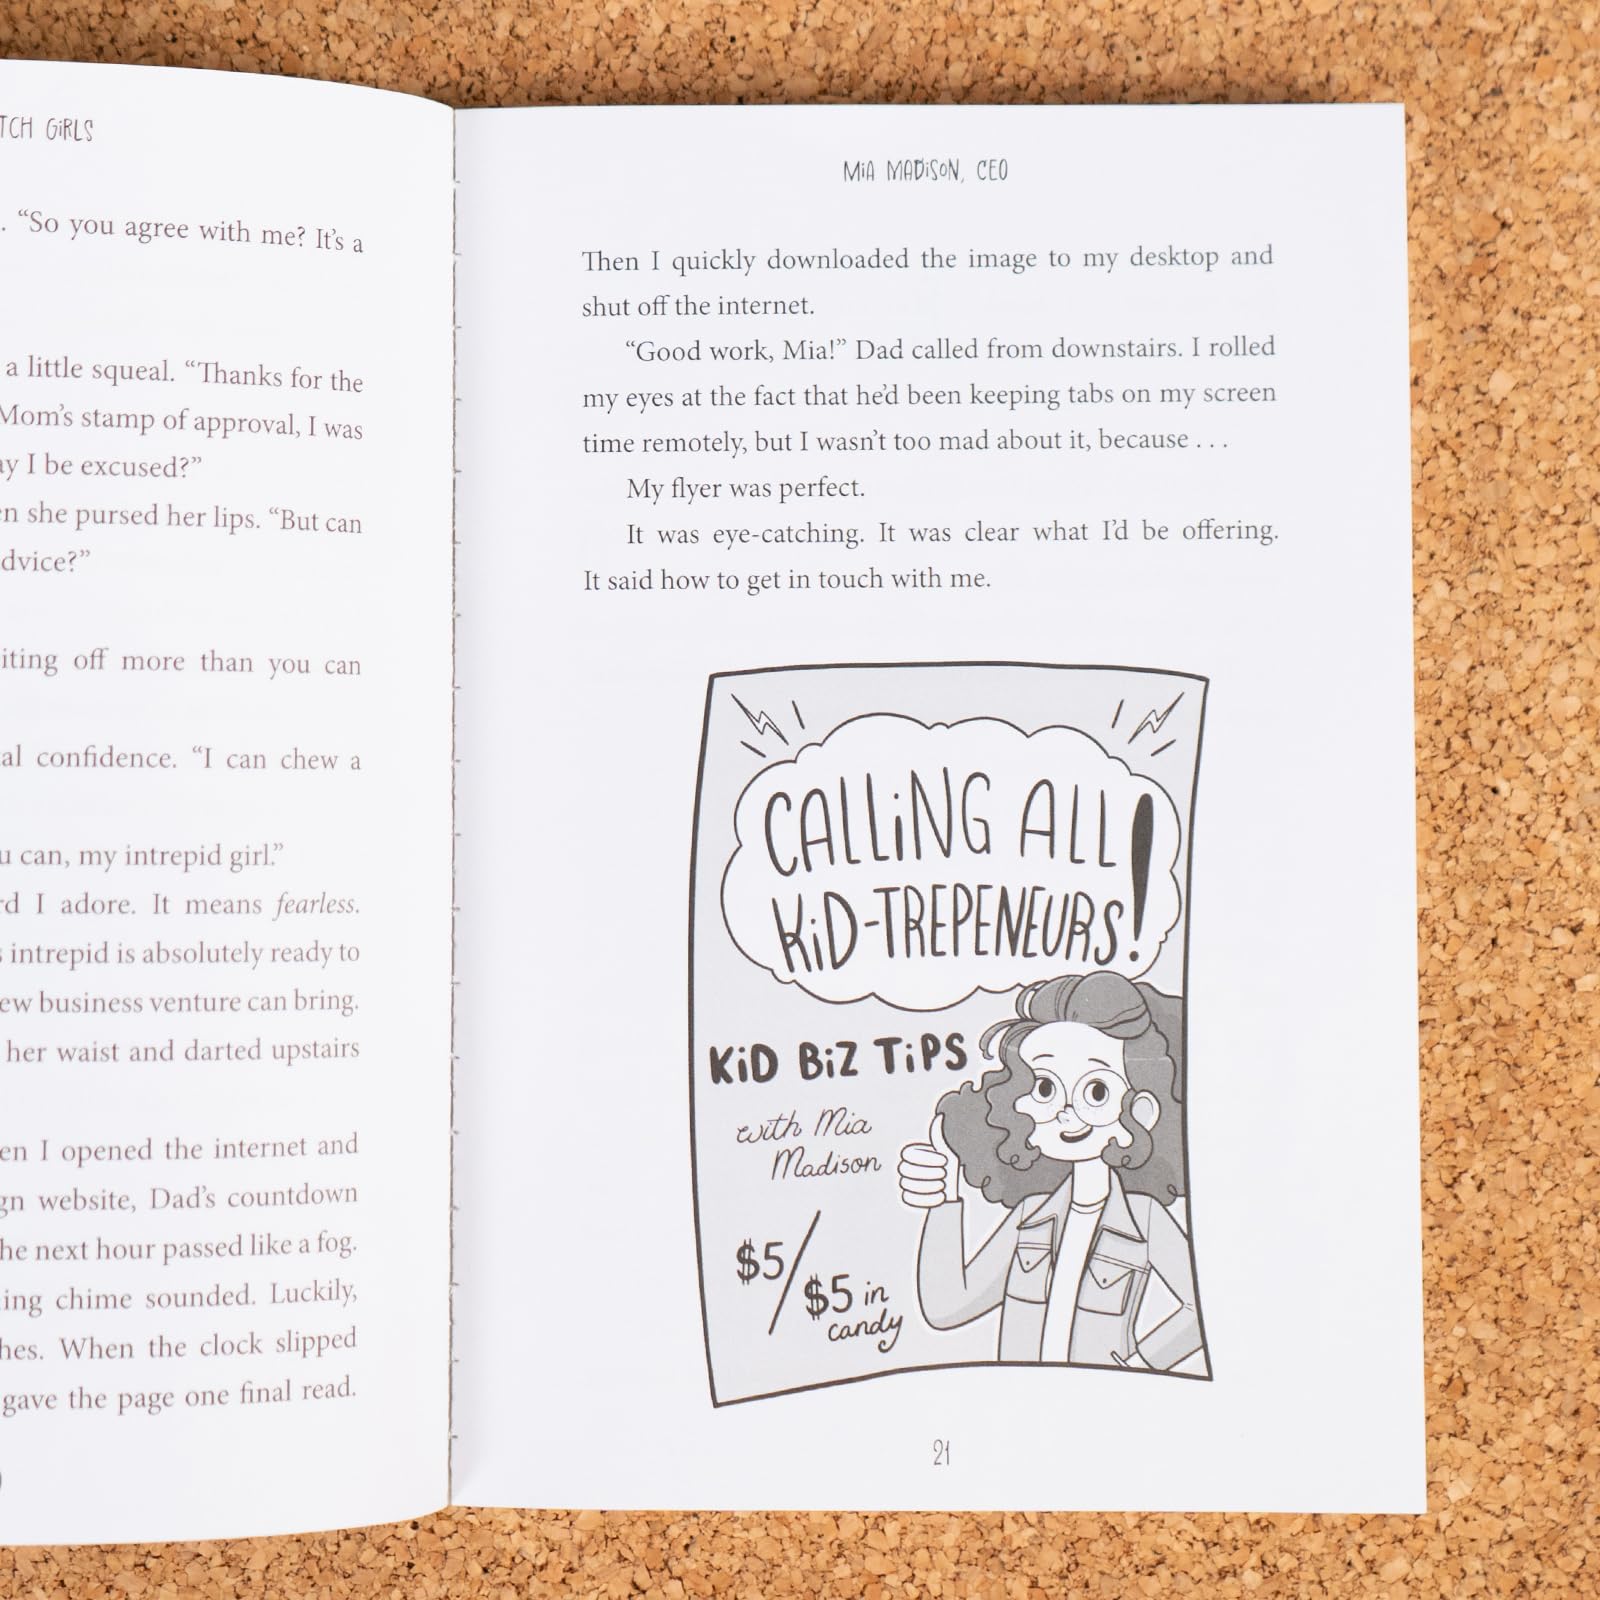 TCH GiRLS
. “So you agree with me? It’s a
a little squeal. “Thanks for the
Mom’s stamp of approval, I was
I be excused?”
she pursed her lips. “But can
off more than you can
confidence. “I can chew a
can, my intrepid girl.”
I adore. It means fearless.
intrepid is absolutely ready to
business venture can bring.
her waist and darted upstairs
I opened the internet and
website, Dad’s countdown
next hour passed like a fog.
chime sounded. Luckily,
When the clock slipped
gave the page one final read.
MiA MADiSON, CEO
Then I quickly downloaded the image to my desktop and
shut off the internet.
“Good work, Mia!” Dad called from downstairs. I rolled
my eyes at the fact that he’d been keeping tabs on my screen
time remotely, but I wasn’t too mad about it, because . . .
My flyer was perfect.
It was eye-catching. It was clear what I’d be offering.
It said how to get in touch with me.
CALLiNG ALL
KiD-TREPENEURS!
KiD BiZ TiPS
with Mia
Madison
$5/
$5 in
candy
21